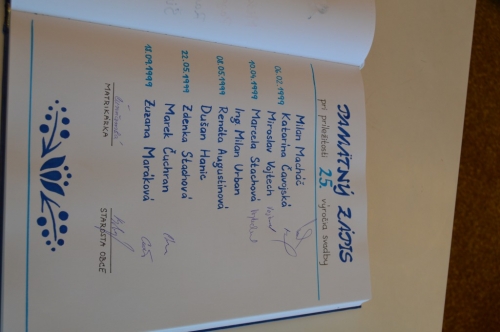 PAMÄTNÝ ZÁPIS
pri príležitosti 25. výročia svadby
06.02.1999 Milan Macháč
Katarína Čavojská
10.04.1999 Miroslav Vojtech
Marcela Stachová
08.05.1999 Ing Milan Urban
Renáta Augustínová
22.05.1999 Dušan Hanic
Zdenka Stachová
18.09.1999 Marek Čuchran
Zuzana Maráková
MATRIKÁRKA STAROSTA OBCE